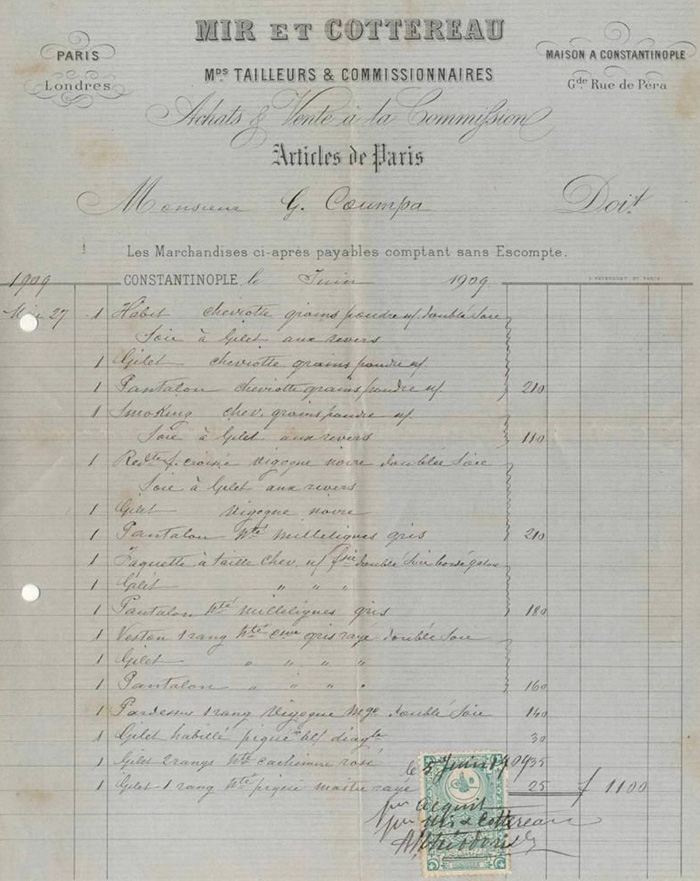 MIR ET COTTEREAU
PARIS
Londres
MAISON A CONSTANTINOPLE
Gde Rue de Péra
Mds TAILLEURS & COMMISSIONNAIRES
Achats & Vente à la Commission
Articles de Paris
Monsieur G. Coumpa Doit
Les Marchandises ci-après payables comptant sans Escompte.
1909 CONSTANTINOPLE, le Juin 1909
27 1 Habit cheviotte grains poudre n/ doublé Soie
Soie à Gilet aux revers
1 Gilet cheviotte grains poudre n/
1 Pantalon cheviotte grains poudre n/ 210
1 Smoking chev. grains poudre n/
Soie à Gilet aux revers 110
1 Redte f. croisée vigogne noire doublée Soie
Soie à Gilet aux revers
1 Gilet vigogne noire
1 Pantalon Nté milleligues gris 210
1 Jaquette à taille chev. n/ doublé Soie
1 Gilet " " "
1 Pantalon Nté milleligues gris 180
1 Veston 1 rang Nté gris rayé doublé Soie
1 Gilet " " " "
1 Pantalon " " " " 160
1 Pardessus 1 rang Vigogne doublé Soie 140
1 Gilet habillé piqué bl/ diagle 30
1 Gilet 2 rangs Nté cachemire rosé 35
1 Gilet 1 rang Nté piqué rayé 25 1100
le 5 Juin 1909
pour acquit
pour Mir & Cottereau